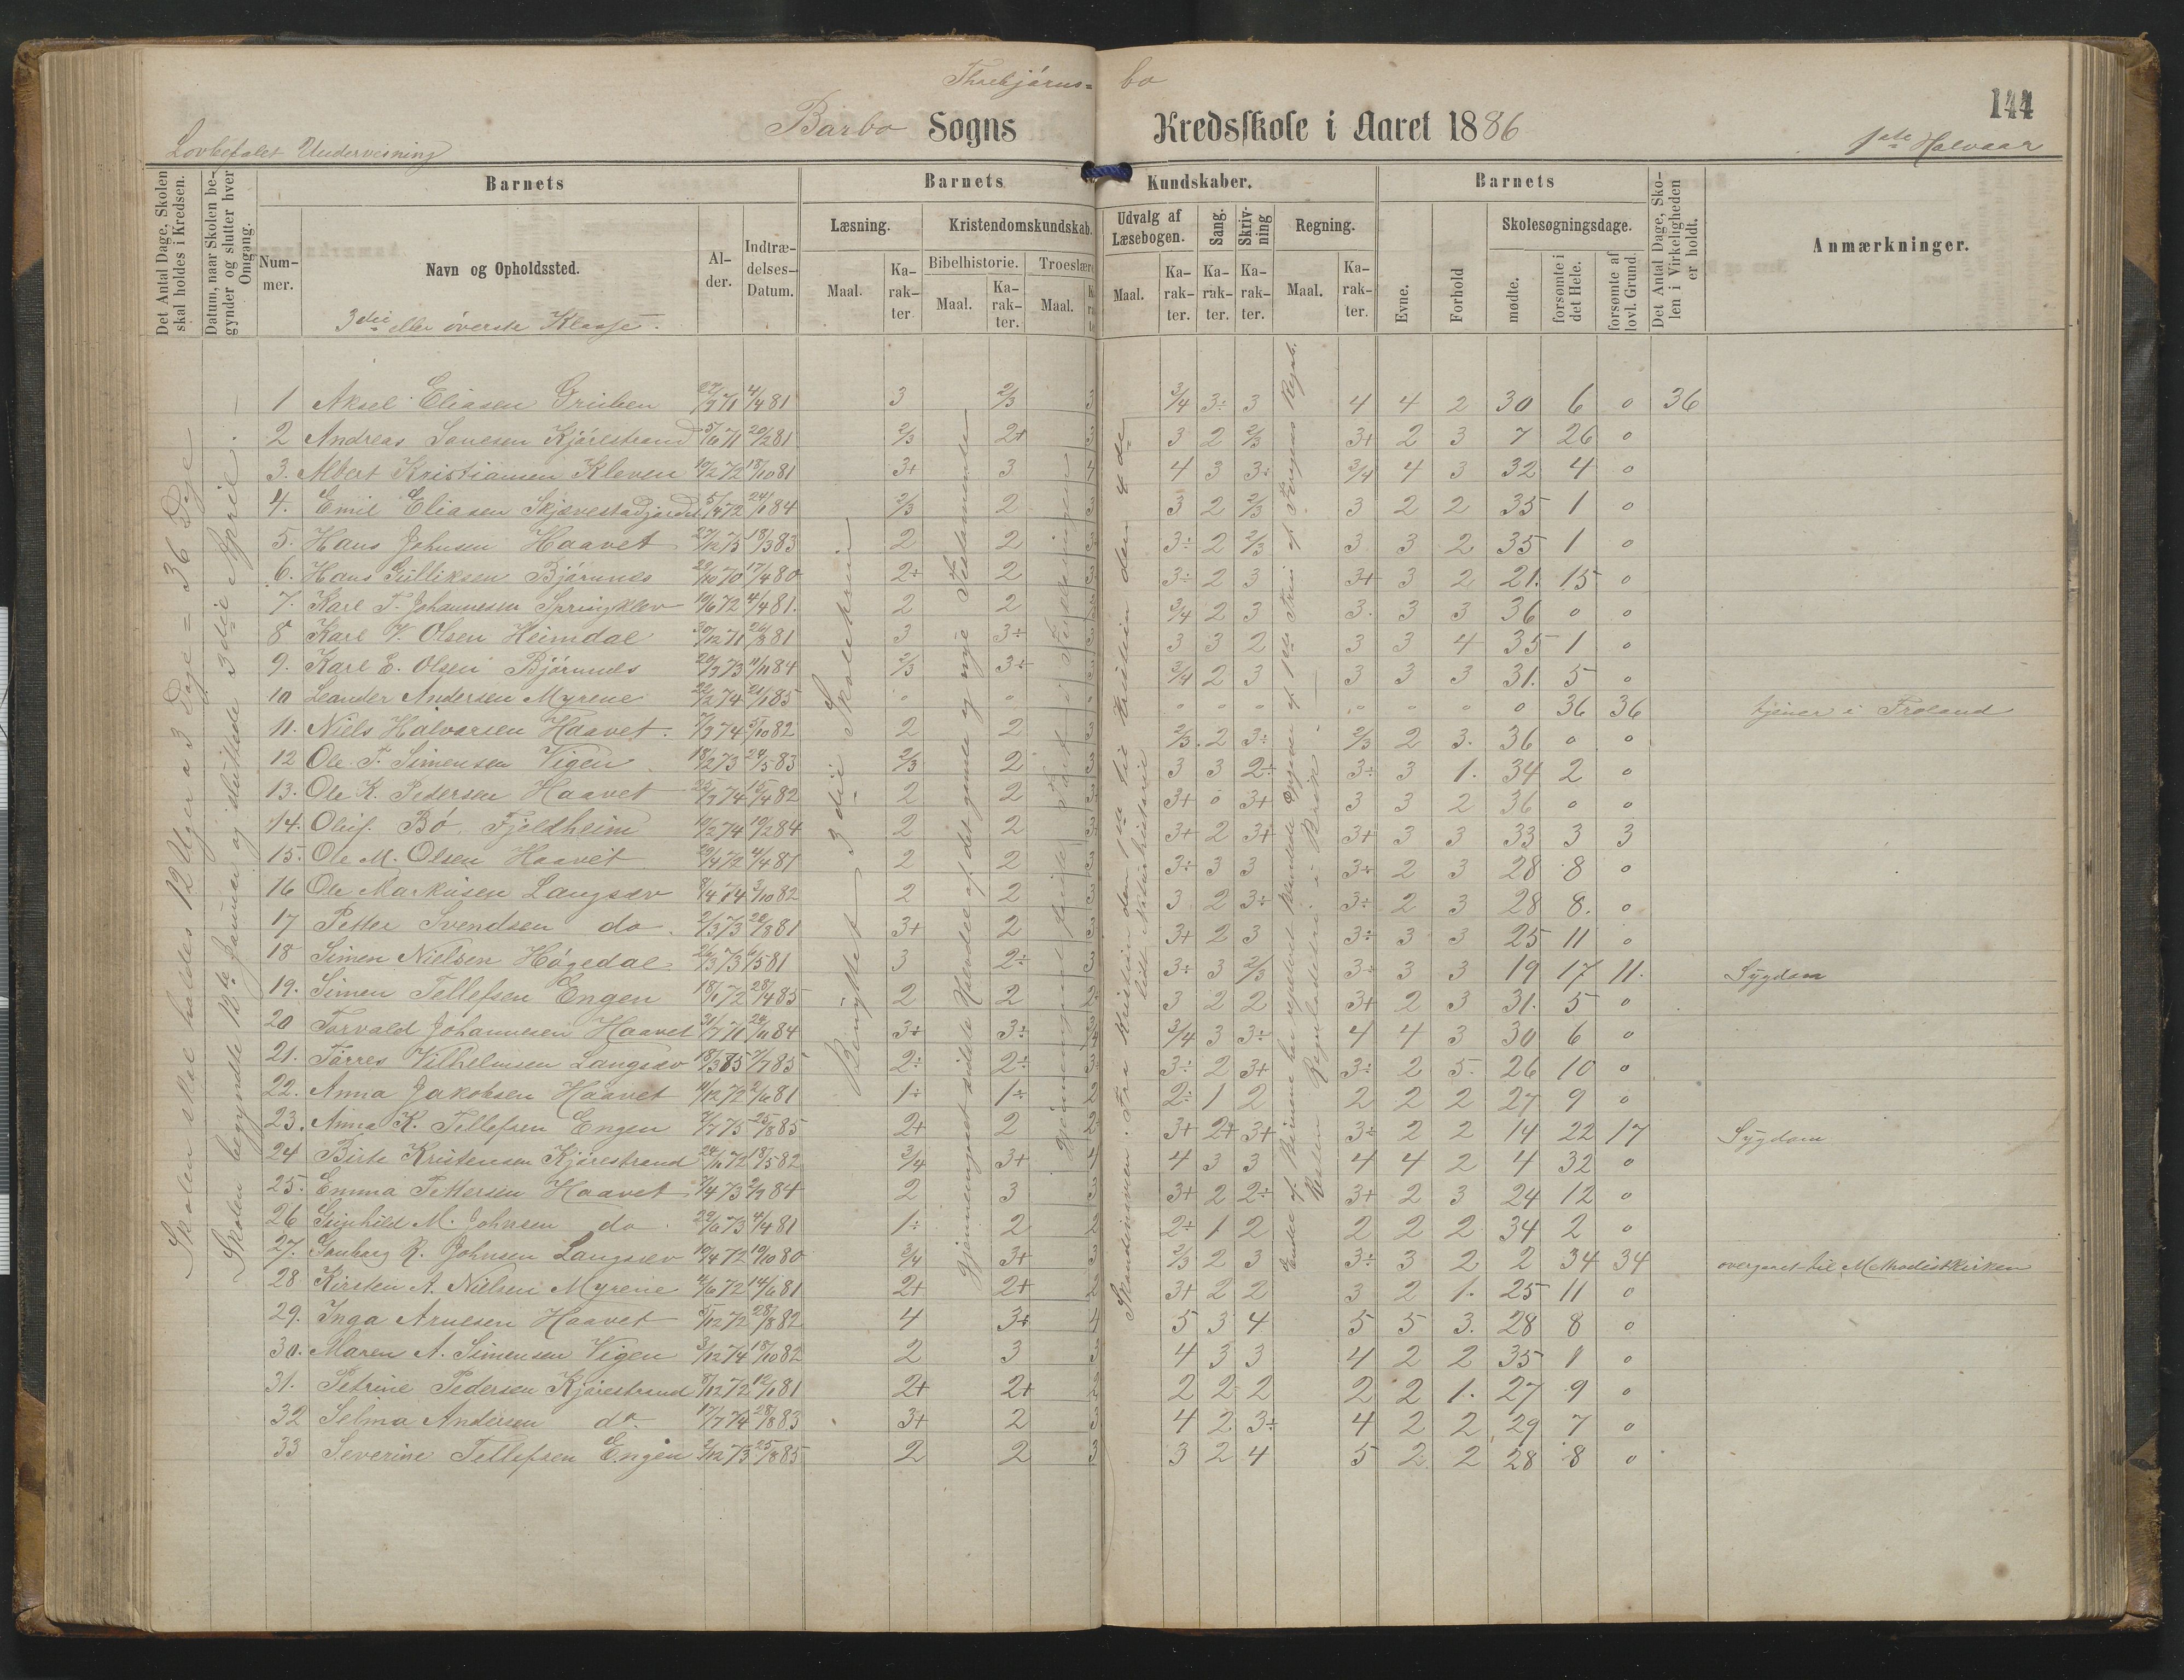 Thorbjörns= bo
144
Barbo Sogns Kredsskole i Aaret 1886
Lovbefalet Undervisning 1ste Halvaar
Det Antal Dage, Skolen skal holdes i Kredsen.
Datum, naar Skolen begynder og slutter hver Omgang.
Barnets
Nummer.
Navn og Opholdssted.
3die eller överste Klasse.
Alder.
Indtrædelses-Datum.
Barnets Kundskaber.
Læsning.
Maal.
Karakter.
Kristendomskundskab.
Bibelhistorie.
Maal.
Karakter.
Troeslære
Maal.
Udvalg af Læsebogen.
Maal.
Karakter.
Sang.
Karakter.
Skrivning
Karakter.
Regning.
Maal.
Karakter.
Barnets
Evne.
Forhold
Skolesøgningsdage.
mødte.
forsømte i det Hele.
forsømte af lovl. Grund.
Det Antal Dage, Skolen i Virkeligheden er holdt.
Anmærkninger.
Skolen skal holdes 12 Uger a 3 Dage = 36 Dage
Skolen begyndte 12te Januar og sluttede 3die April.
Benyttet 3die Skoletrin
Gjennemgaaet sidste Halvdel af det gamle og nye Testamente
Skandinavien. Fra Kristian den 1ste til Kristian den 4de
lidt Naturhistorie
1 Aksel Eliasen Gruben 27/3 71 4/4 81 3 2/3 3 3/4 3÷ 3 4 4 2 30 6 0 36
2 Andreas Kjörestrand 5/6 71 20/2 81 2/3 2+ 3 3 2 2/3 3+ 2 3 7 26 0
3. Albert Kristiansen Kleven 10/2 72 18/10 81 3+ 3 4 4 3 3÷ 3/4 4 3 32 4 0
4. Emil Eliasen 2/3 2 3 3 2 2/3 3 2 2 35 1 0
5. Hans Johnsen Haavet 27/12 75 18/3 83 2 2 3 3÷ 2 2/3 3 3 2 35 1 0
6. Hans Gulliksen Björnnes 29/10 70 17/4 80 2÷ 2 3 3÷ 2 3 3+ 3 2 21. 15 0
7. Karl T. Johannesen Springklev 10/6 72 4/4 81. 2 2 3/4 2 3 3. 3 3 36 0 0
8 Karl V. Olsen Heimdal 30/12 71 81 3 3÷ 3 3 3 2 3 3 4 35 1 0
9. Karl E. Olsen Björnnes 20/3 73 11/11 84 2/3 3÷ 3 3/4 2 3 3 3 3 31. 5 0
10 Leander Andersen Myrene 22/2 74 21/1 85 0 0 0 0 36 36 tjener i Froland
11. Niels Halvorsen Haavet. 7/3 74 5/10 82 2 2 3 2/3. 2 3÷ 2/3 2 3. 36 0 0
12 Ole T. Simensen Vigen 18/2 73 24/5 83 2/3 2 3 3 3 2÷ 3÷ 3 1. 34 2 0
13. Ole K. Pedersen Haavet 25/3 74 15/4 82 2 2 3 3+ 0 3+ 3 3 2 36 0 0
14. Oluf Bö Fjeldheim 10/2 74 19/2 84 2 2 3 3+ 2 3+ 3+ 3 3 33 3 3
15. Ole M. Olsen Haavet 29/4 72 4/4 81 2 2 3 3÷ 3 3 3÷ 2 3 28 8 0
16 Ole Markusen Langsæv 8/4 74 3/10 82 2 2 3 3 2 3÷ 3÷ 2 3 28 8. 0
17 Petter Svendsen do. 2/3 73 20/8 81 3+ 2 3 3+ 2 3 3÷ 3 3 25 11 0
18 Simen Nielsen Högedal 26/3 73 6/5 81 3 2÷ 3 3÷ 3 2/3 3÷ 3 3 19 17 11. Sygdom
19. Simen Tellefsen Engen 18/1 72 28/4 85 2 2 2 3 2 2 3+ 2 3 31. 5 0
20 Torvald Johannesen Haavet 31/7 71 24/11 84 3÷ 3÷ 3/4 3/4 3 3÷ 4 4 3 30 6 0
21. Törres Vilhelmsen Langsæv 18/3 85 7/7 85 2÷ 2÷ 3 3÷ 2 3+ 3÷ 2 5. 26 10 0
22. Anna Jakobsen Haavet 11/12 72 2/6 81 1÷ 1÷ 2 2÷ 1 2 2 2 2 27 9 0
23. Anna K. Tellefsen Engen 7/7 75 25/8 85 2+ 2 2 3+ 2+ 3+ 3÷ 2 2 14 22 17 Sygdom
24 Birte Kristensen Kjörestrand 24/11 72 18/5 82 3/4 3+ 4 4 3 3 4 4 2 4 32 0
25. Emma Pettersen Haavet 7/4 73 84 2 3 3 3+ 2 2÷ 3+ 2 3 24 12 0
26 Gunhild M. Johnsen do. 29/6 73 4/4 81 1÷ 2 2 2÷ 1 2 2 2 2 34 2 0
27. Gunborg R. Johnsen Langsæv 10/4 72 19/10 80 3/4 3+ 3 2/3 2 3 3÷ 3 2 2 34 34 overgaaet til Methodistkirken
28 Kirsten A. Nielsen Myrene 4/6 72 14/6 81 2+ 2+ 2 3+ 2 2 3 2 1. 25 11 0
29. Inga Arnesen Haavet 5/12 72 28/8 82 4 3+ 4 5 3 4 5 5 3. 28 8 0
30. Maren A. Simensen Vigen 3/12 74 18/10 82 2 3 3 4 3 3 4 2 2 35 1 0
31. Petrine Pedersen Kjörestrand 8/12 72 12/1 81 2+ 2+ 2 2 2 2 2 2 1. 27 9 0
32 Selma Andersen do. 17/7 74 28/8 83 3+ 2 3 4 2 3÷ 4 2 2 29 7 0
33 Severine Tellefsen Engen 2/12 73 25/8 85 2 2 3 3 2 4 5 2 2 28 8 0